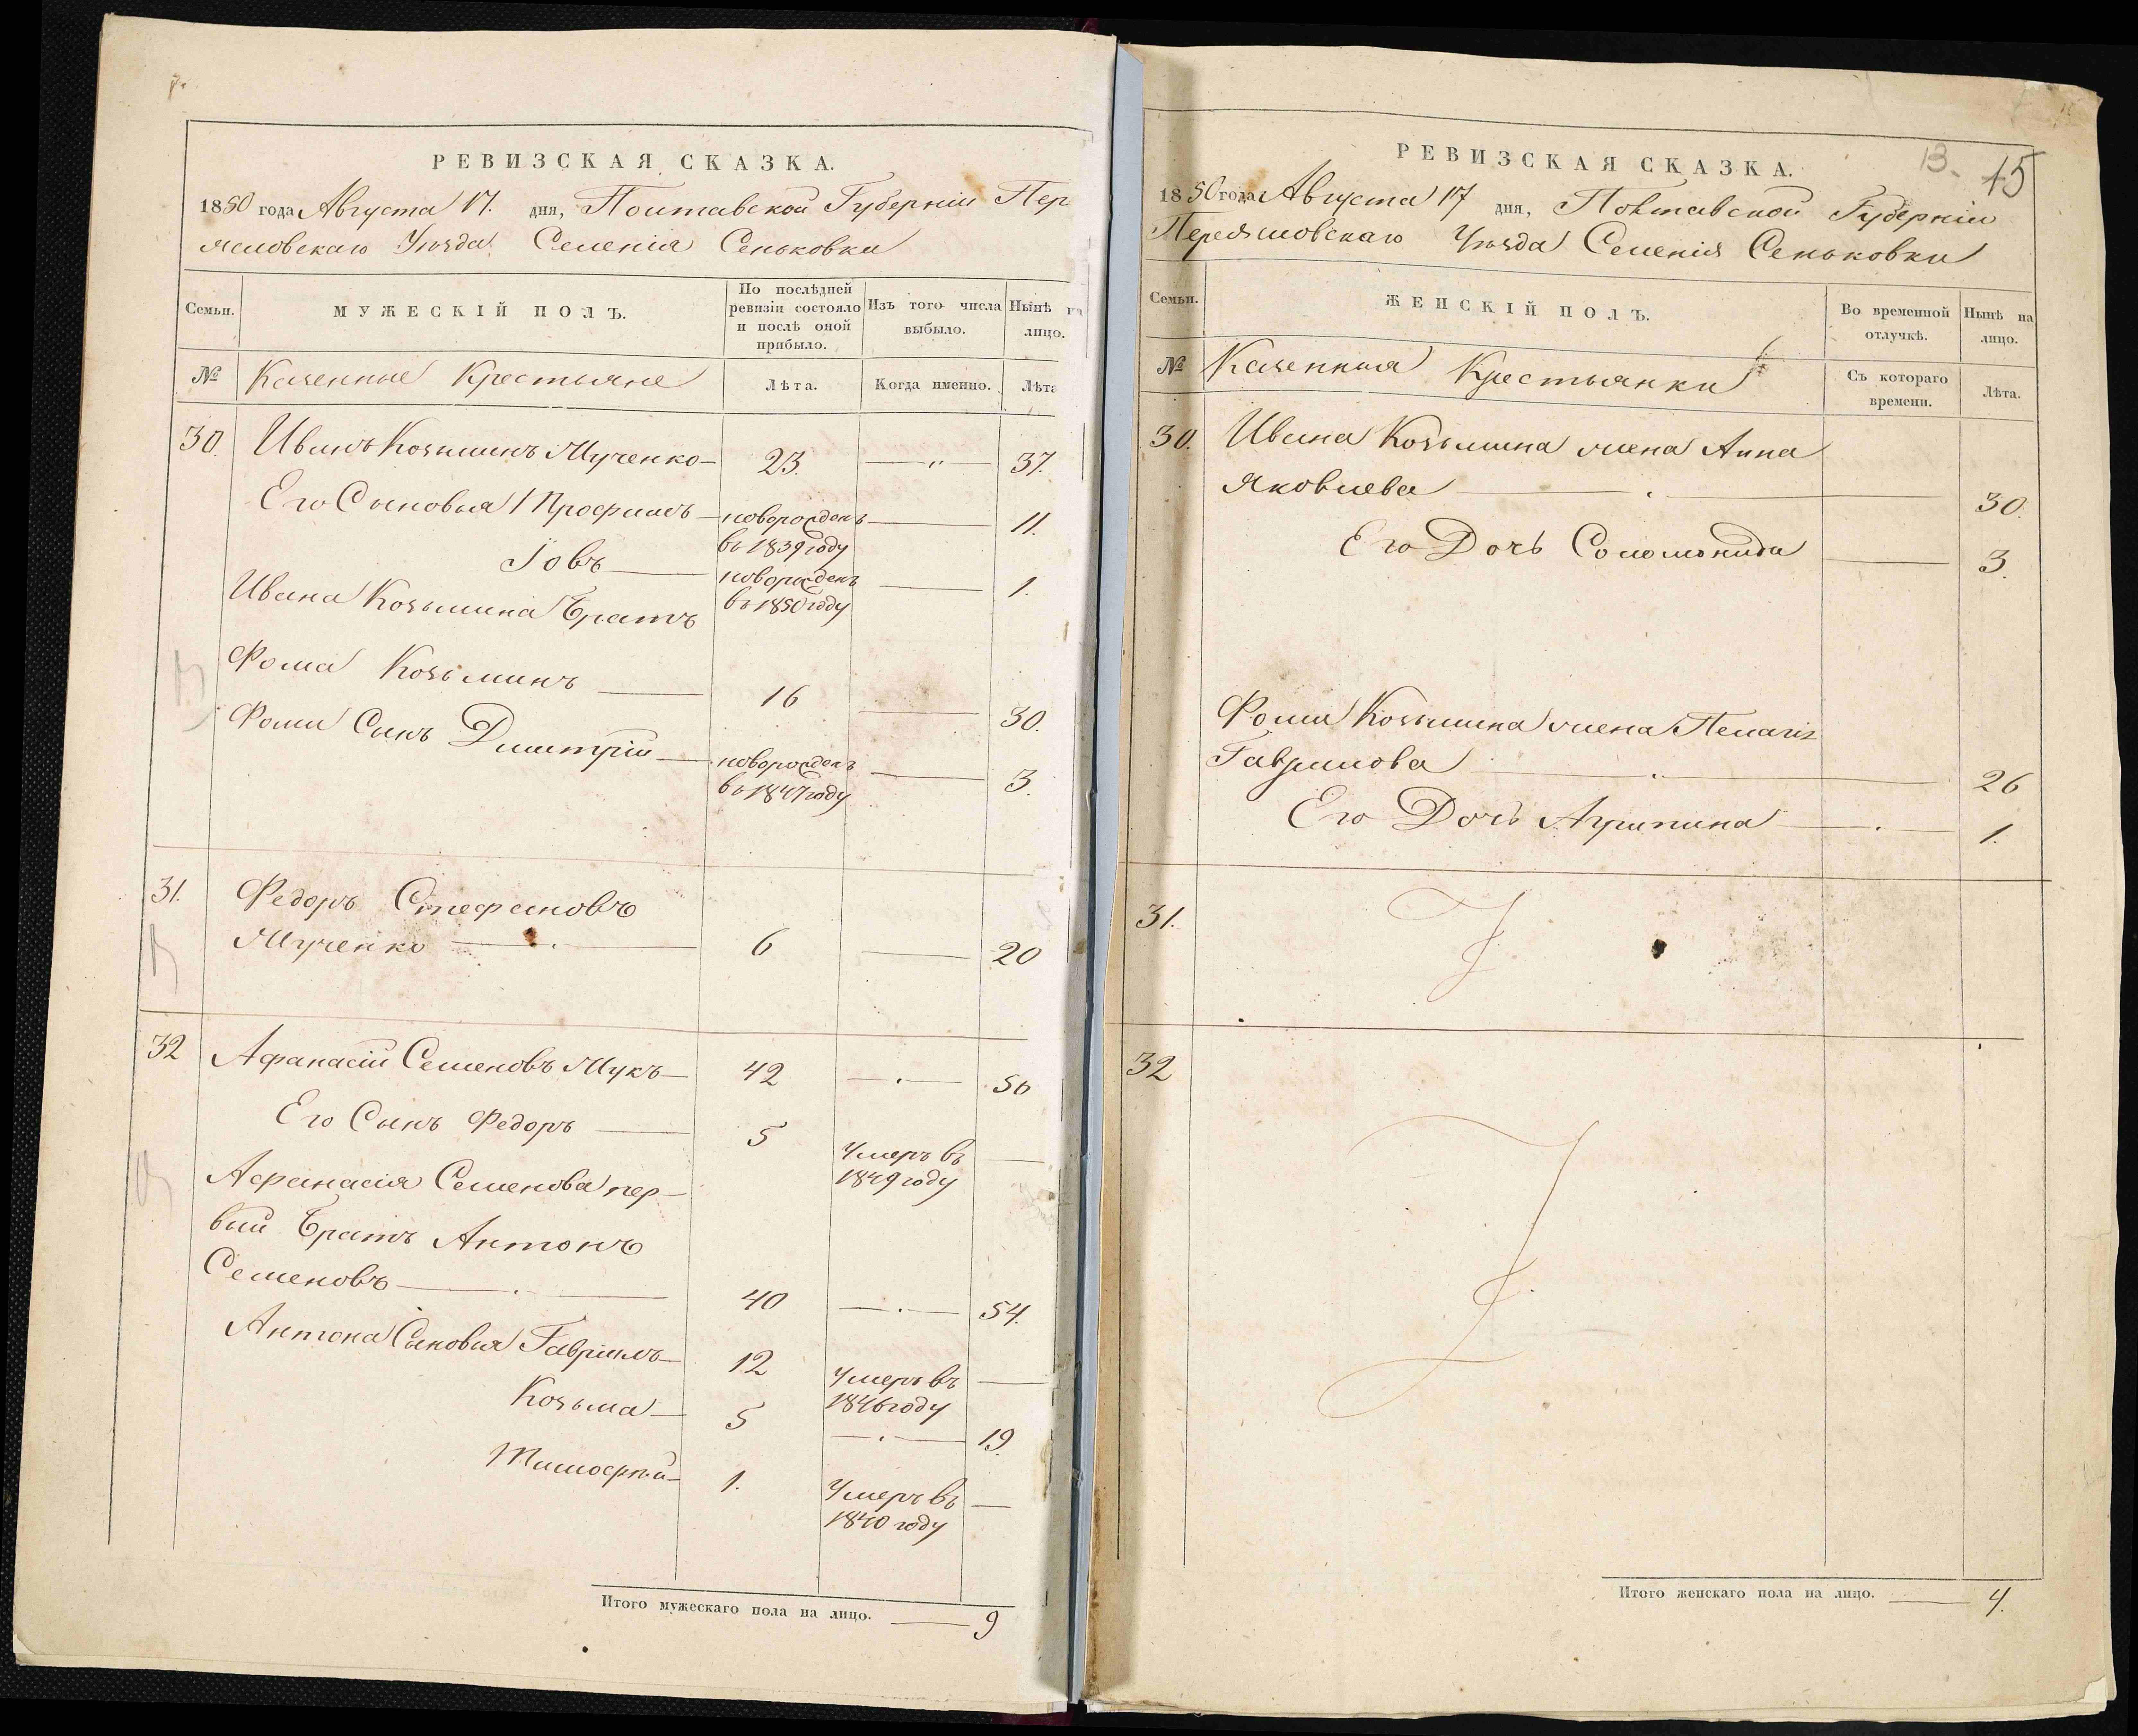 РЕВИЗСКАЯ СКАЗКА.
1850 года Августа 17. дня, Полтавской Губерніи Пер
яславскаго Уѣзда Селенія Сеньковки
Семьи.
МУЖЕСКІЙ ПОЛЪ.
По послѣдней ревизіи состояло и послѣ оной прибыло.
Изъ того числа выбыло.
Нынѣ на лицо.
№
Казенные Крестьяне
Лѣта.
Когда именно.
Лѣта
30. Иванъ Козьминъ Мученко — 23. — 37.
Его Сыновья 1 Профимъ — новорожденъ в 1839 году — 11.
Іовъ — новорожденъ в 1850 году — 1.
Ивана Козьмина Братъ
Фома Козьминъ — 16 — 30.
Фомы Сынъ Дмитрій — новорожденъ в 1847 году — 3.
31. Федоръ Стефановъ
Мученко — 6 — 20
32 Афанасій Семеновъ Мукъ — 42 — 56
Его Сынъ Федоръ — 5 Умеръ въ 1849 году —
Афанасія Семенова пер-
вый Братъ Антонъ
Семеновъ — 40 — 54.
Антона Сыновья Гавріилъ — 12 Умеръ въ 1846 году —
Козьма — 5 — 19.
Тимофей — 1. Умеръ въ 1840 году —
Итого мужескаго пола на лицо. — 9
13. 15
РЕВИЗСКАЯ СКАЗКА.
1850 года Августа 17 дня, Полтавской Губерніи
Переяславскаго Уѣзда Селенія Сеньковки
Семьи.
ЖЕНСКІЙ ПОЛЪ.
Во временной отлучкѣ.
Нынѣ на лицо.
№
Казенныя Крестьянки
Съ котораго времени.
Лѣта.
30. Ивана Козьмина жена Анна
Яковлева — 30.
Его Дочь Соломонида — 3.
Фомы Козьмина жена Пелагія
Гаврилова — 26
Его Дочь Агрипина — 1.
31.
32
Итого женскаго пола на лицо. — 4.